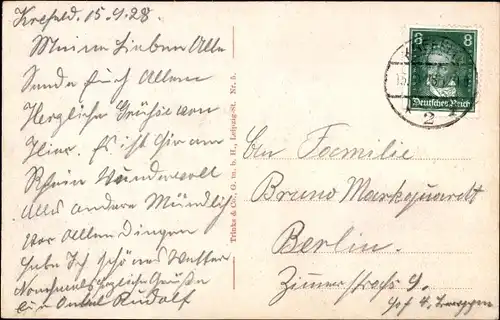 Krefeld. 15.9.28.
Meine Lieben Alle
Sende Euch Allen
Herzliche Grüsse von
hier. Es ist hier am
Rhein Wundervoll
Alles andere Mündlich
Vor allen Dingen
habe Ich schönes Wetter
Nochmals herzliche Grüße
Onkel Rudolf
Trinks & Co., G. m. b. H., Leipzig-St. Nr. 5.
8 8
Deutsches Reich
2
An Familie
Bruno Markquardt
Berlin.
Zimmerstraße 9.
Hof 4. Treppen